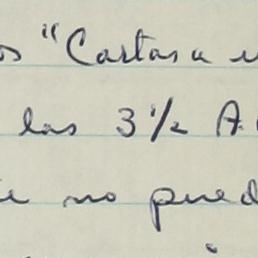 os "Cartas a u
las 3½ A.
te no pued